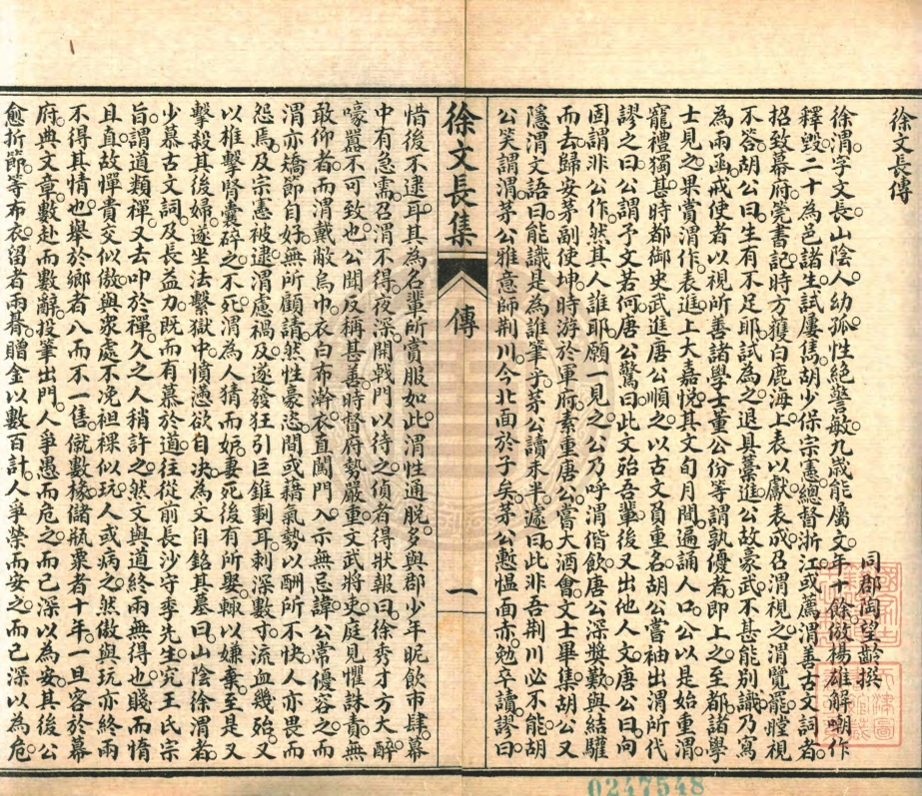 徐文長傳
同郡陶望齡撰
徐渭字文長山陰人幼孤性絕警敏九歲能屬文年十餘倣楊雄解嘲作
釋毀二十為邑諸生試屢雋胡少保宗憲總督浙江或薦渭善古文詞者
招致幕府筦書記時方獲白鹿海上表以獻表成乃渭視之渭覽罷瞠視
不答胡公曰生有不足耶試為之退具藁進公故豪武不甚能別識乃寫
為兩函戒使者以視所善諸學士董公份等謂孰優者即上之至都諸學
士見之果賞渭作表進上大嘉悅其文旬月間遍誦人口公以是始重渭
寵禮獨甚時都御史武進唐公順之以古文負重名胡公嘗袖出渭所代
謬之曰公謂予文若何唐公驚曰此文殆吾輩後又出他人文唐公曰向
固謂非公作然其人誰耶願一見之公乃呼渭偕飲唐公深獎歎與結驩
而去歸安茅副使坤時游於軍府素重唐公嘗大酒會文士畢集胡公又
隱渭文語曰能識是為誰筆乎茅公讀未半遽曰此非吾荊川必不能胡
公笑謂渭茅公雅意師荊川今北面於子矣茅公慙慍面赤勉卒讀謬曰
徐文長集
傳
一
惜後不逮耳其為名輩所賞服如此渭性通脫多與郡少年昵飲市肆幕
中有急需召渭不得夜深開戟門以待之偵者得狀報曰徐秀才方大醉
嚎嚣不可致也公聞反稱甚善時督府勢嚴重文武將吏庭見懼誅責無
敢仰者而渭戴敝烏巾衣白布澣衣直闖門入示無忌諱公常優容之而
渭亦矯節自好無所顧請然性豪恣間或藉氣勢以酬所不快人亦畏而
怨焉及宗憲被逮渭慮禍及遂發狂引巨錐剚耳刺深數寸流血幾殆又
以椎擊腎囊碎之不死渭為人猜而妒妻死後有所娶輒以嫌棄至是又
擊殺其後婦遂坐法繫獄中憤懣欲自决為文自銘其墓曰山陰徐渭者
少慕古文詞及長益力既而有慕於道往從前長沙守季先生究王氏宗
旨謂道類禪又去叩於禪久之人稍許之然文與道終兩無得也賤而惰
且直故憚貴交似傲與衆處不浼袒裸似玩人或病之然傲與玩亦終兩
不得其情也舉於鄉者八而不一售僦數椽儲瓶粟者十年一旦客於幕
府典文章數赴而數辭投筆出門人爭愚而危之而己深以為安其後公
愈折節等布衣留者兩朞贈金以數百計人爭榮而安之而己深以為危
0247548